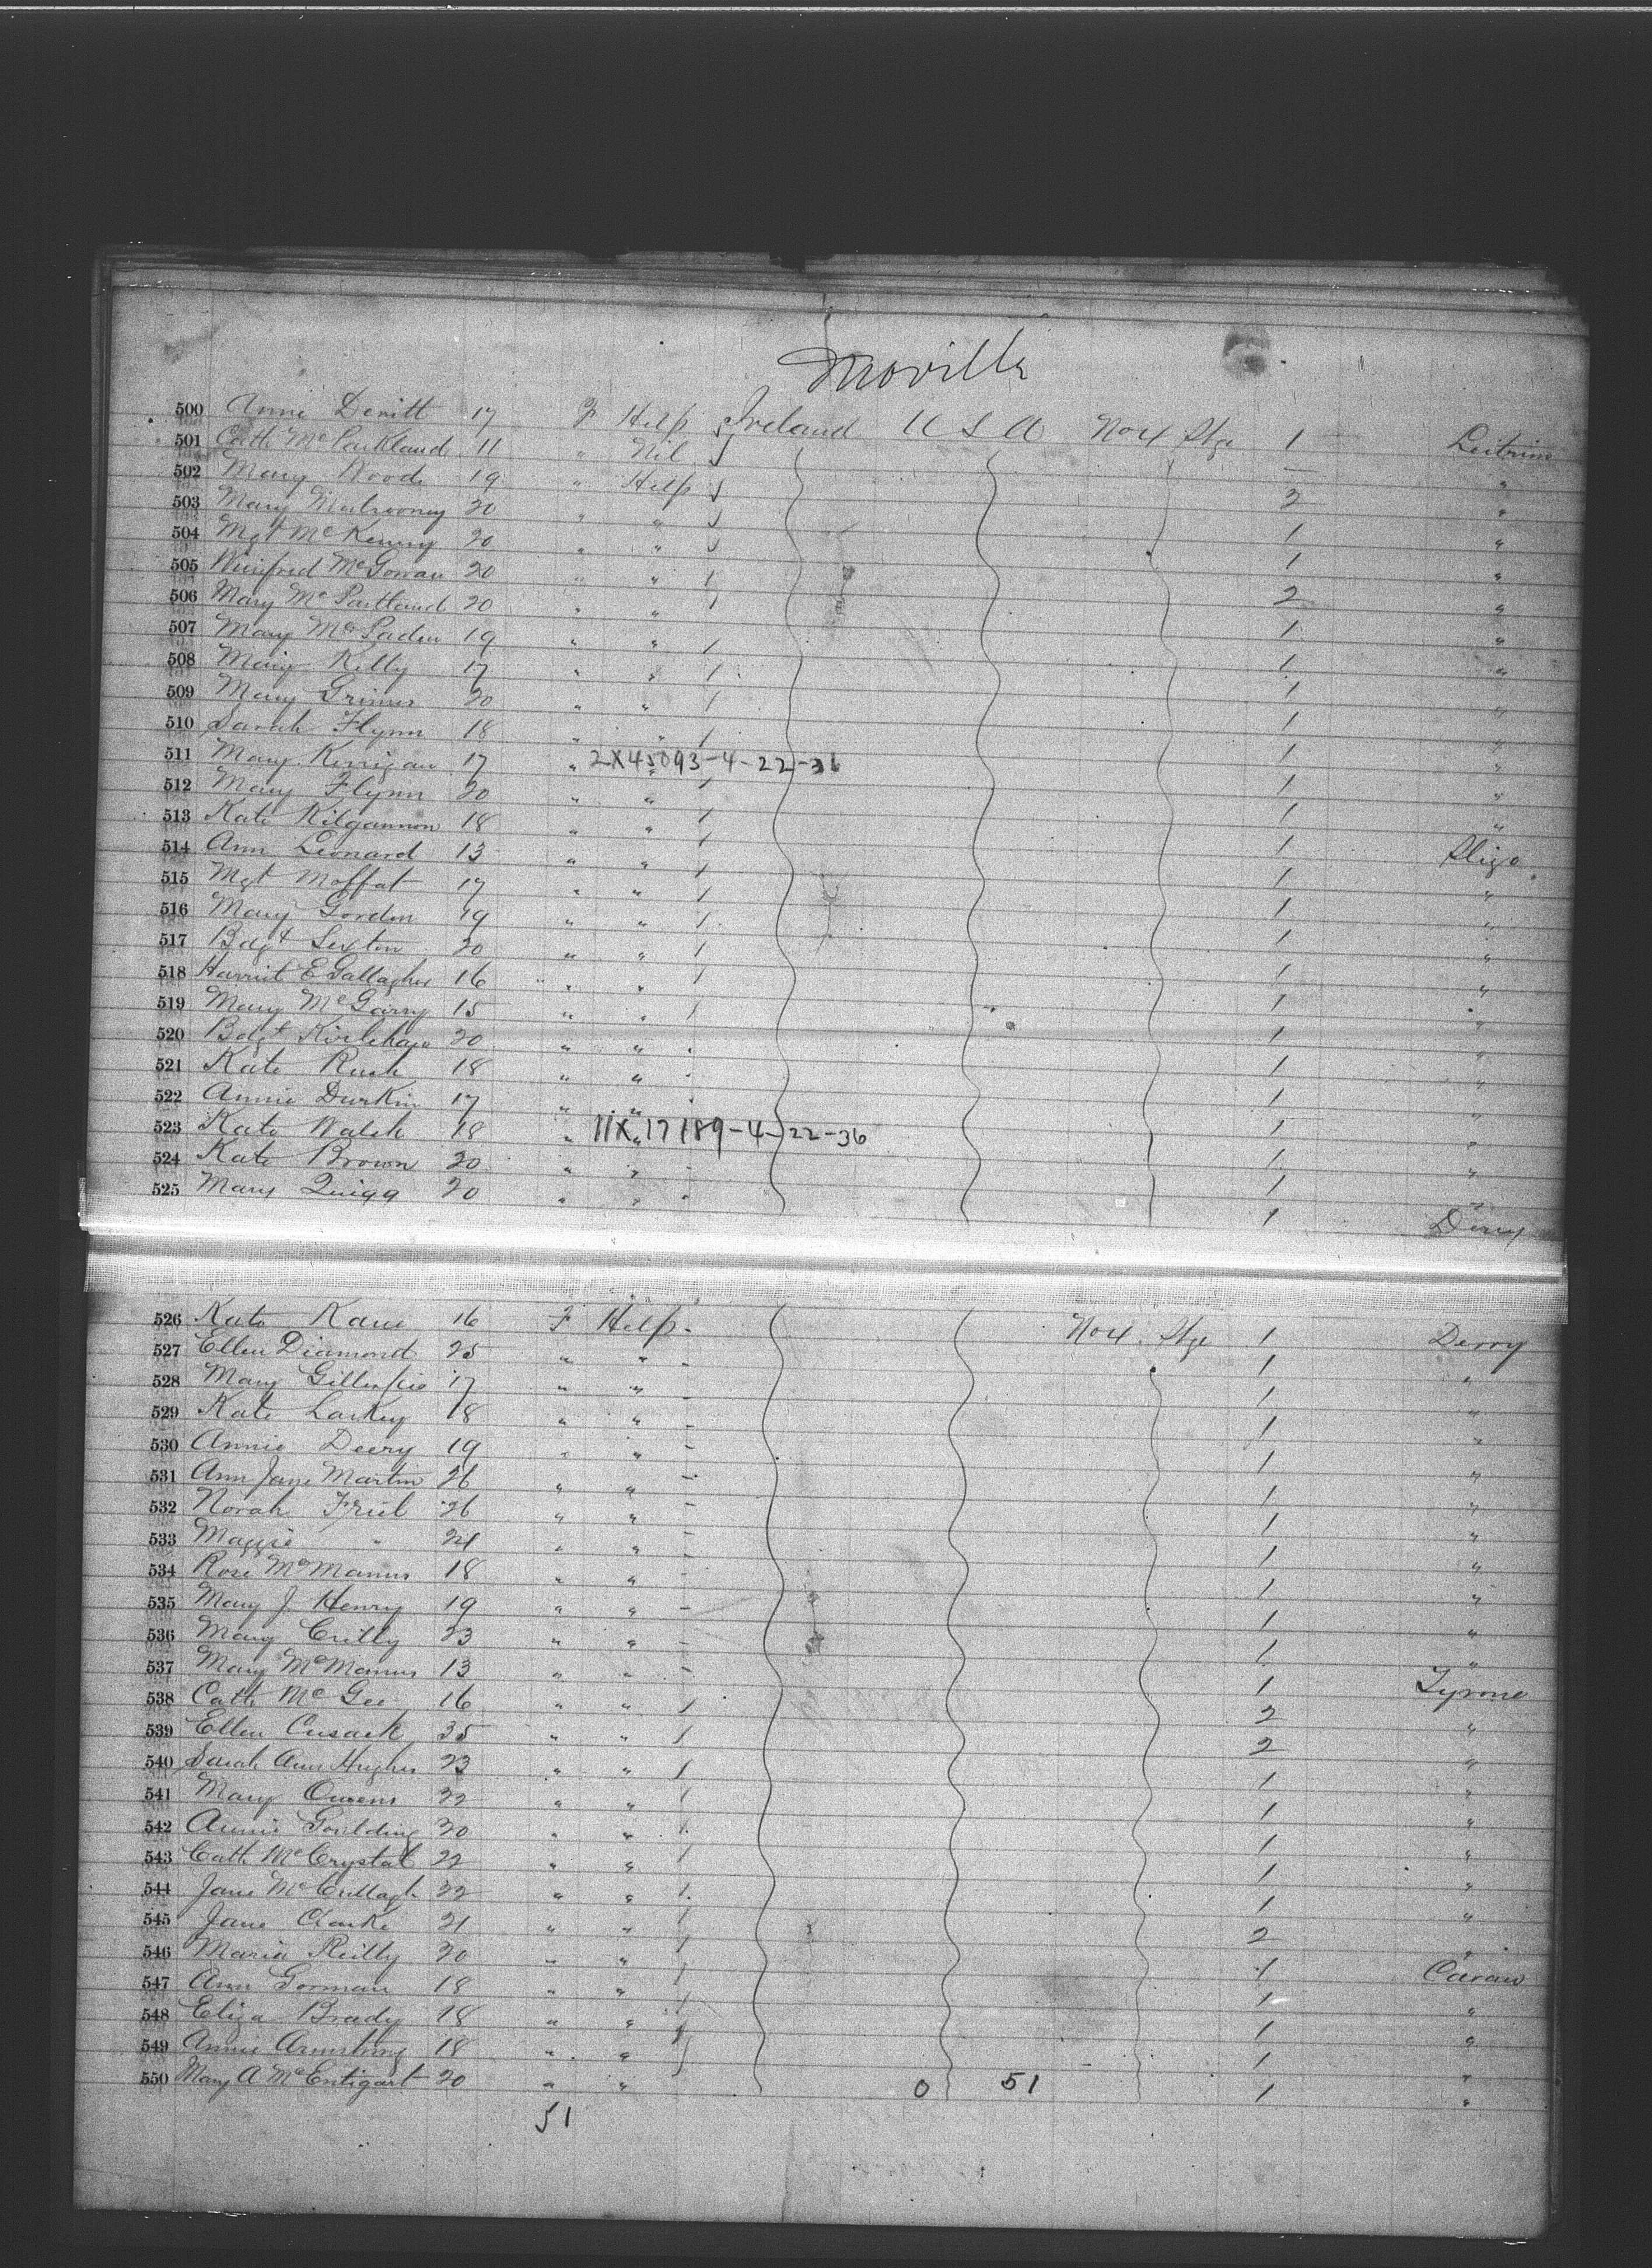 Moville
500 Annie Devitt 17 F Help Ireland U S A No 4 Stge 1 Leitrim
501 Cath McPartland 11 " Nil — "
502 Mary Woods 19 " Help 2 "
503 Mary Mulrooney 20 " " 1 "
504 Mgt McKenny 20 " " 1 "
505 Winifred McGowan 20 " " 2 "
506 Mary McPartland 20 " " 1 "
507 Mary 19 " " 1 "
508 Mary Kelly 17 " " 1 "
509 Mary Grimes 20 " " 1 "
510 Sarah Flynn 18 " " 1 "
511 Mary Kerrigan 17 " 2X45093-4-22-36 1 "
512 Mary Flynn 20 " " 1 "
513 Kate Kilgannon 18 " " 1 Sligo
514 Ann Leonard 13 " " 1 "
515 Mgt Moffat 17 " " 1 "
516 Mary Gordon 19 " " 1 "
517 Bdgt Sexton 20 " " 1 "
518 Harriet E Gallagher 16 " " 1 "
519 Mary McGarry 15 " " 1 "
520 Bdgt 20 " " 1 "
521 Kate Rush 18 " " 1 "
522 Annie Durkin 17 " " 1 "
523 Kate Walsh 18 " 11X17189-4-22-36 1 "
524 Kate Brown 20 " " 1 "
525 Mary Quigg 20 " " 1 Derry
526 Kate Kane 16 F Help No 4 Stge 1 Derry
527 Ellen Diamond 25 " " 1 "
528 Mary Gillespie 17 " " 1 "
529 Kate Larkey 18 " " 1 "
530 Annie Deery 19 " " 1 "
531 Ann Jane Martin 26 " " 1 "
532 Norah Friel 26 " " 1 "
533 Maggie " 24 " " 1 "
534 Rose McManus 18 " " 1 "
535 Mary J Henry 19 " " 1 "
536 Mary Crilly 23 " " 1 "
537 Mary McManus 13 " " 1 Tyrone
538 Cath McGee 16 " " 2 "
539 Ellen Cusack 35 " " 2 "
540 Sarah Ann Hughes 23 " " 1 "
541 Mary Owens 22 " " 1 "
542 Annie Goulding 20 " " 1 "
543 Cath McCrystal 22 " " 1 "
544 Jane McCullagh 22 " " 1 "
545 Jane Clarke 21 " " 2 "
546 Maria Reilly 20 " " 1 Cavan
547 Ann Gorman 18 " " 1 "
548 Eliza Brady 18 " " 1 "
549 Annie Armstrong 18 " " 1 "
550 Mary A McEntigart 20 " " 0 51 1 "
51